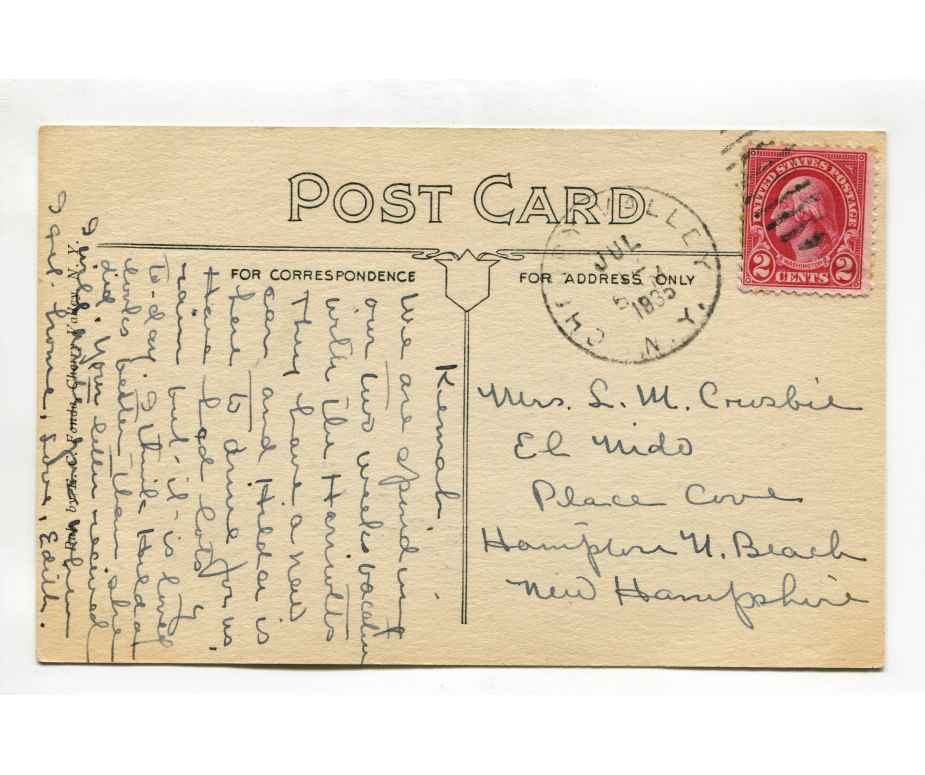 POST CARD
FOR CORRESPONDENCE
FOR ADDRESS ONLY
UNITED STATES POSTAGE
WASHINGTON
2 CENTS 2
VALLEY
JUL
1935
N.Y.
Mrs. L. M. Crosbie
El Nido
Place Cove
Hampton N. Beach
New Hampshire
We are spending
our two weeks vacation
with the Harriotts
They have a new
car and Hilda is
here to drive for us
Have had lots of
rain but it is
to-day. I think Hilda
looks better than she
did. Your letter received
I will
I get home. Love, Edith.
Pub. by Cherry Valley, N. Y.